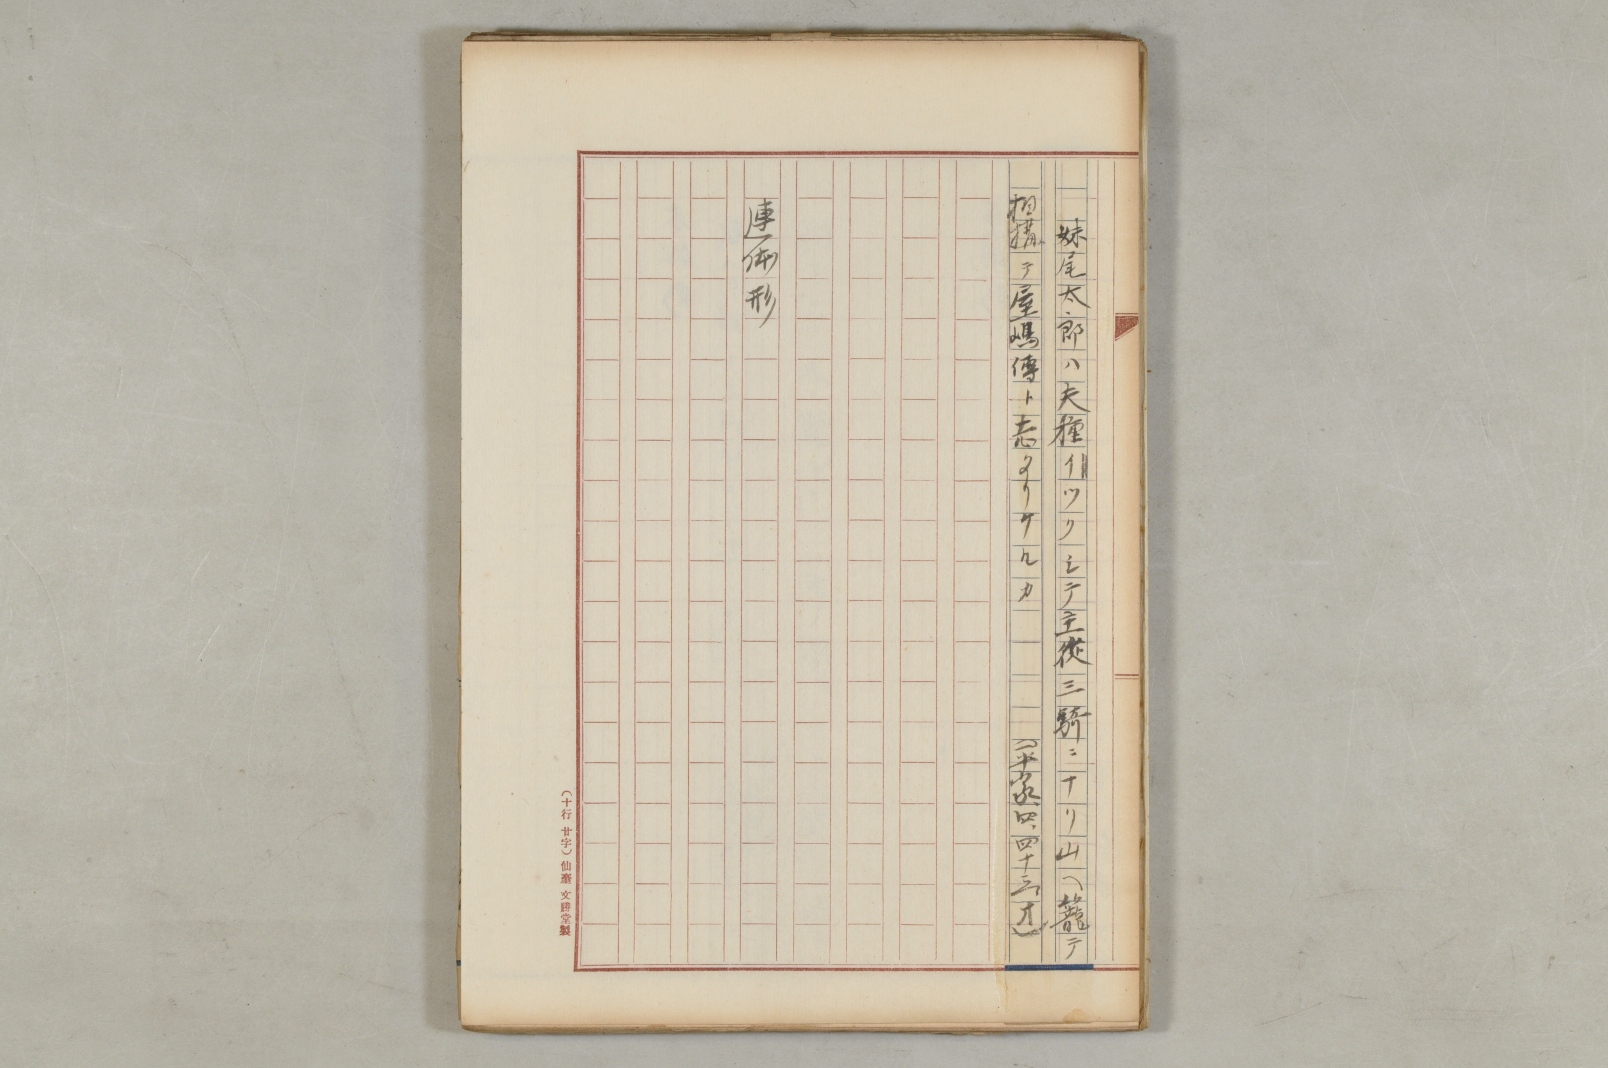 妹尾太郎ハ矢種イツクシテ主従三騎ニナリ山ヘ籠テ
相構テ屋嶋傳ト志タリケルカ （平家、四、四十三オ）
連体形
（十行 廿字）仙臺 文勝堂製